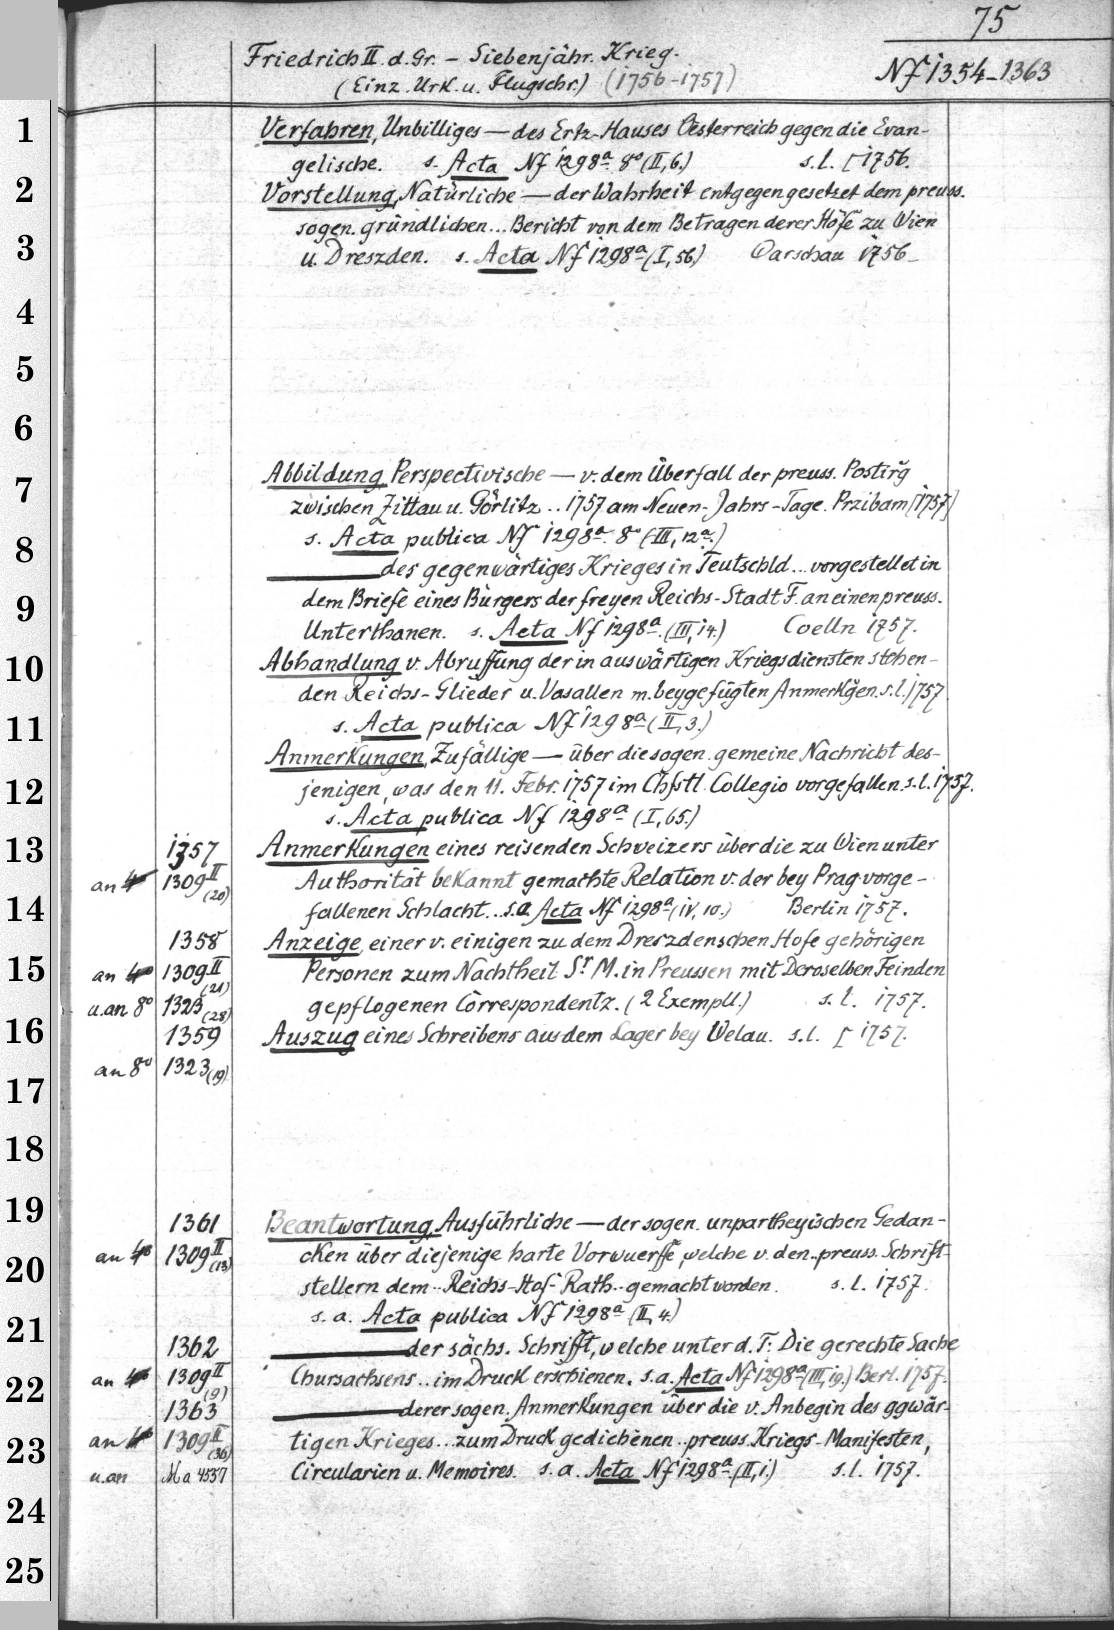 75
Friedrich II. d. Gr. – Siebenjähr. Krieg.
(Einz. Urk. u. Flugschr.) (1756–1757)
Nf 1354–1363
1
Verfahren, Unbilliges — des Ertz-Hauses Oesterreich gegen die Evan-
gelische. s. Acta Nf 1298a. 8° (II, 6.) s.l. [1756.
2
Vorstellung, Natürliche — der Wahrheit entgegengesetzet dem preuss.
sogen. gründlichen... Bericht von dem Betragen derer Höfe zu Wien
3
u. Dreszden. s. Acta Nf 1298a (I, 56.) Warschau 1756
4
5
6
Abbildung, Perspectivische — v. dem Überfall der preuss. Postirg
7
zwischen Zittau u. Görlitz .. 1757 am Neuen-Jahrs-Tage. Przibam [1757]
8
s. Acta publica Nf 1298a. 8° (III, 12a.)
— des gegenwärtiges Krieges in Teutschld... vorgestellet in
9
dem Briefe eines Bürgers der freyen Reichs-Stadt F. an einen preuss.
Unterthanen. s. Acta Nf 1298a. (III, 14.) Coelln 1757.
10
Abhandlung v. Abruffung der in auswärtigen Kriegsdiensten stehen-
den Reichs-Glieder u. Vasallen m. beygefügten Anmerkgen. s.l. 1757
11
s. Acta publica Nf 1298a (II, 3.)
Anmerkungen, Zufällige — über die sogen. gemeine Nachricht des-
12
jenigen, was den 11. Febr. 1757 im Chfstl. Collegio vorgefallen. s.l. 1757.
s. Acta publica Nf 1298a (I, 65.)
13
1357 Anmerkungen eines reisenden Schweizers über die zu Wien unter
an 4° 1309 II (20) Authorität bekannt gemachte Relation v. der bey Prag vorge-
14
fallenen Schlacht... s.a. Acta Nf 1298a (IV, 10.) Berlin 1757.
1358 Anzeige einer v. einigen zu dem Dreszdenschen Hofe gehörigen
15
an 4° 1309 II (21) Personen zum Nachtheil Sr. M. in Preussen mit Deroselben Feinden
u. an 8° 1323 (28) gepflogenen Correspondentz. (2 Exempll.) s. l. 1757.
16
1359 Auszug eines Schreibens aus dem Lager bey Welau. s.l. [1757.
17
an 8° 1323 (19)
18
19
1361 Beantwortung, Ausführliche — der sogen. unpartheyischen Gedan-
20
an 4° 1309 II (13) cken über diejenige harte Vorwuerffe, welche v. den .. preuss. Schrift-
stellern dem .. Reichs-Hof-Rath .. gemacht worden. s. l. 1757.
21
s. a. Acta publica Nf 1298a (II, 4.)
1362 — der sächs. Schrifft, welche unter d. T: Die gerechte Sache
22
an 4° 1309 II (9) Chursachsens .. im Druck erschienen. s.a. Acta Nf 1298a (III, 19.) Berl. 1757.
1363 — derer sogen. Anmerkungen über die v. Anbegin des ggwär-
23
an 4° 1309 II (36) tigen Krieges... zum Druck gediehenen .. preuss. Kriegs-Manifesten,
u. an Ma 4537 Circularien u. Memoires. s. a. Acta Nf 1298a. (II, 1.) s. l. 1757.
24
25